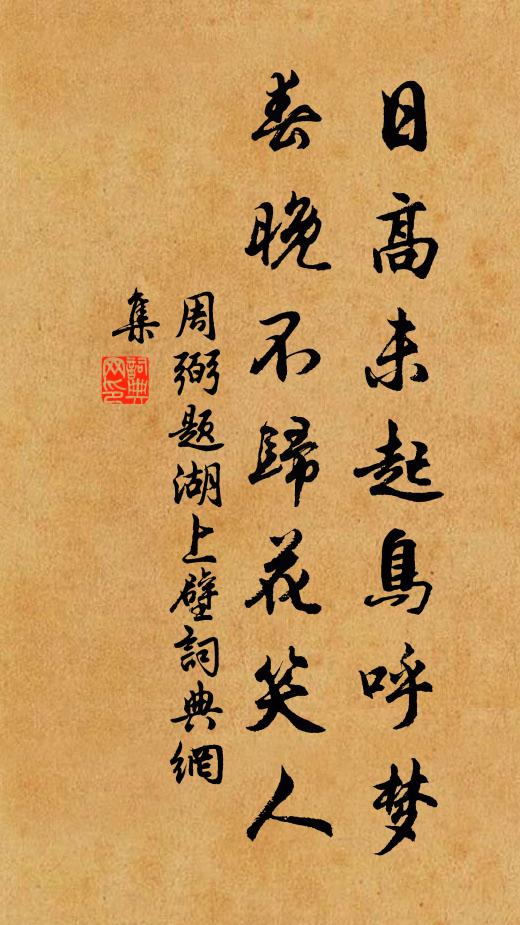 日高未起鳥呼梦
春晚不歸花笑人
周弼题湖上壁詞典網
集
詞典
网印